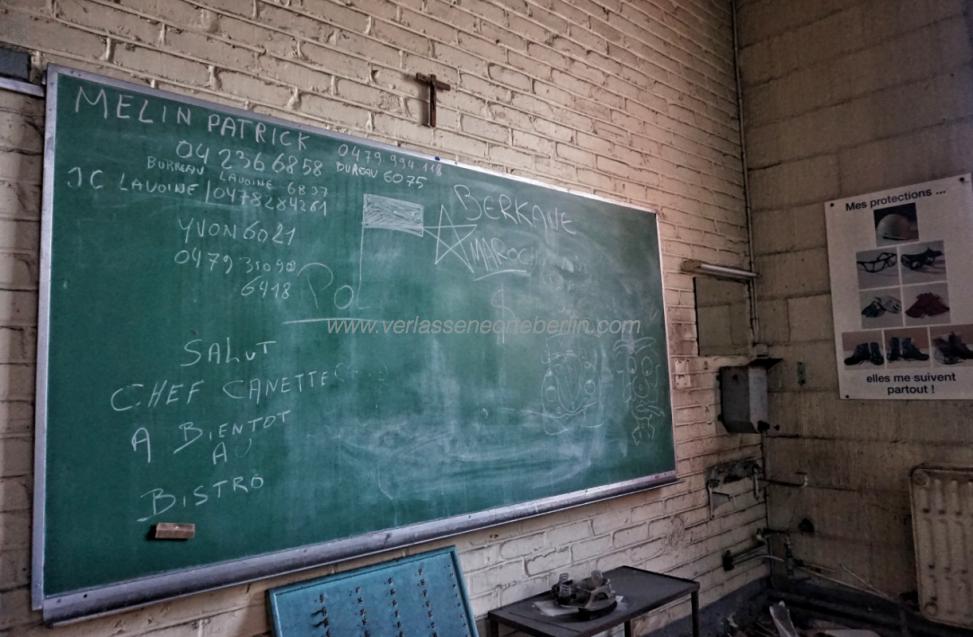 MELIN PATRICK 0479 994 118
04 236 6858 BUREAU 6075
BUREAU LAVOINE 6837
JC LAVOINE / 0478284261
YVON 6021
0479 350 98
6418
POL
BERKANE
MAROC
SALUT
CHEF CANETTE
A BIENTOT
AU
BISTRO
www.verlasseneorteberlin.com
Mes protections ...
elles me suivent
partout !